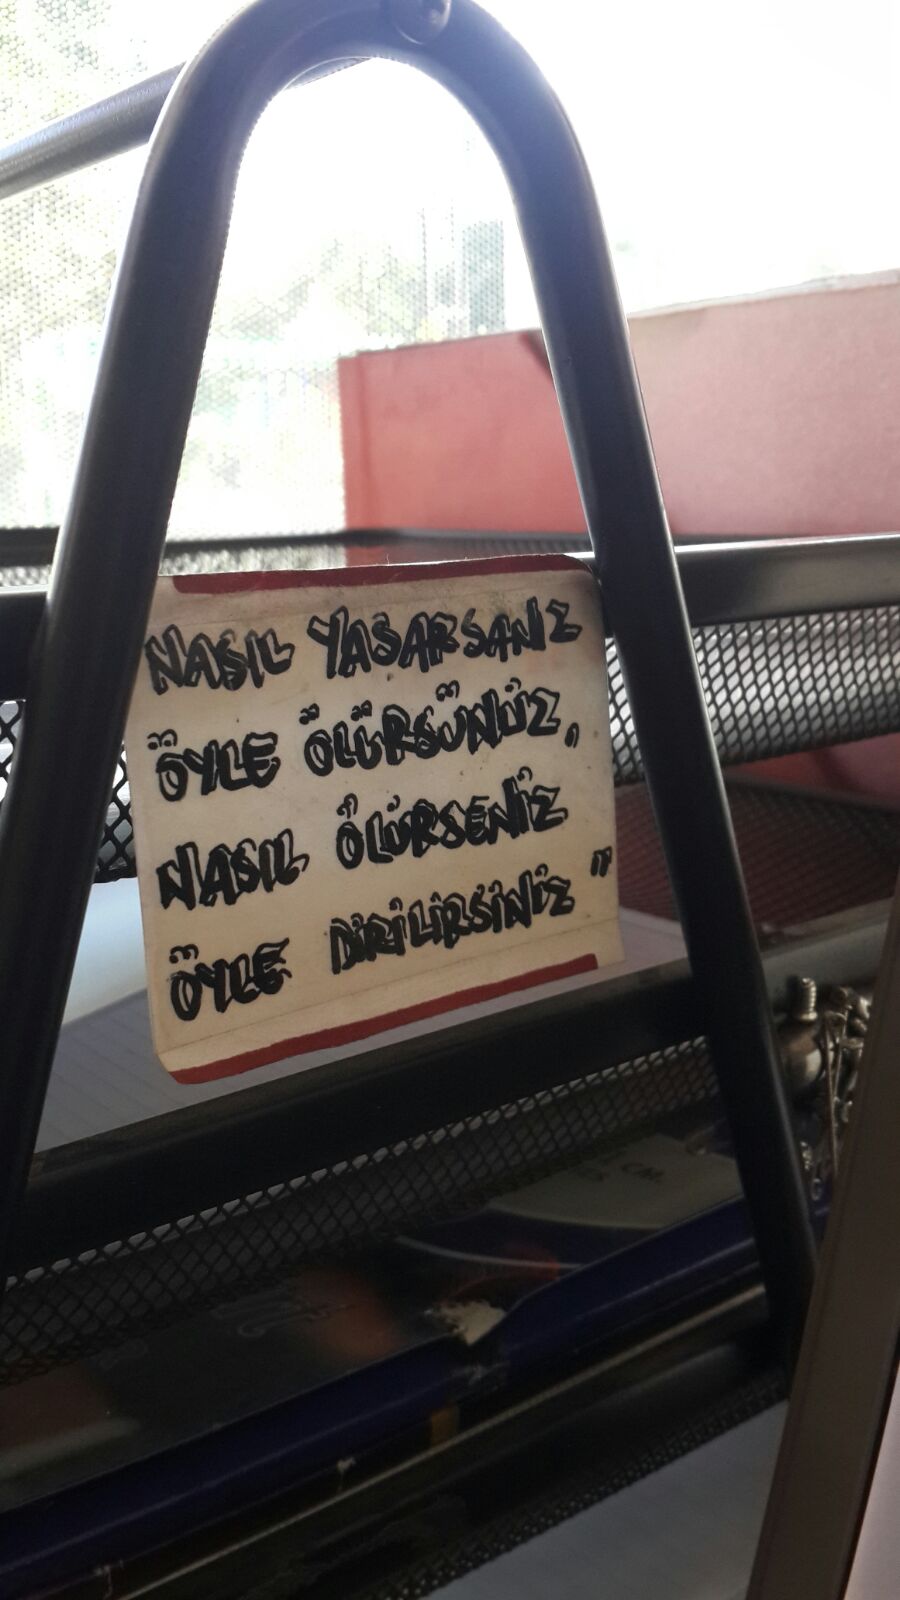 NASIL YASARSANIZ
ÖYLE ÖLÜRSÜNÜZ,
NASIL ÖLÜRSENİZ
ÖYLE DİRİLİRSİNİZ"
CM.